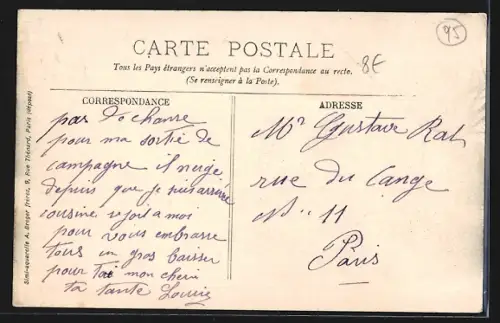 95
CARTE POSTALE
8€
Tous les Pays étrangers n'acceptent pas la Correspondance au recto.
(Se renseigner à la Poste).
CORRESPONDANCE
ADRESSE
pas de chance
pour ma sortie de
campagne il neige
depuis que je suis arrivée
cousine se joint a moi
pour vous embrasse
tous un gros baiser
pour toi mon cheri
ta tante Louise
Mr Gustave Rat
rue du Cange
N° 11
Paris
Simili-aquarelle A. Breger frères, 9, Rue Thénard, Paris (déposé)